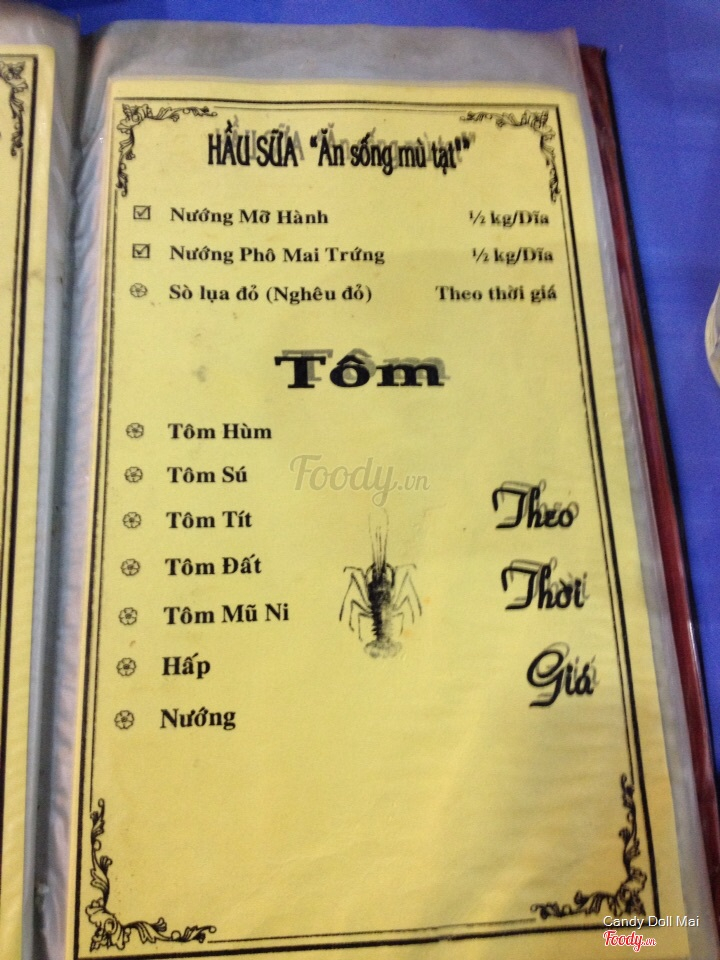 HẦU SỮA “Ăn sống mù tạt"”
Nướng Mỡ Hành ½ kg/Dĩa
Nướng Phô Mai Trứng ½ kg/Dĩa
Sò lụa đỏ (Nghêu đỏ) Theo thời giá
Tôm
Tôm Hùm
Tôm Sú
Foody.vn
Tôm Tít
Theo
Tôm Đất
Thời
Tôm Mũ Ni
Hấp
Giá
Nướng
Candy Doll Mai
Foody.vn